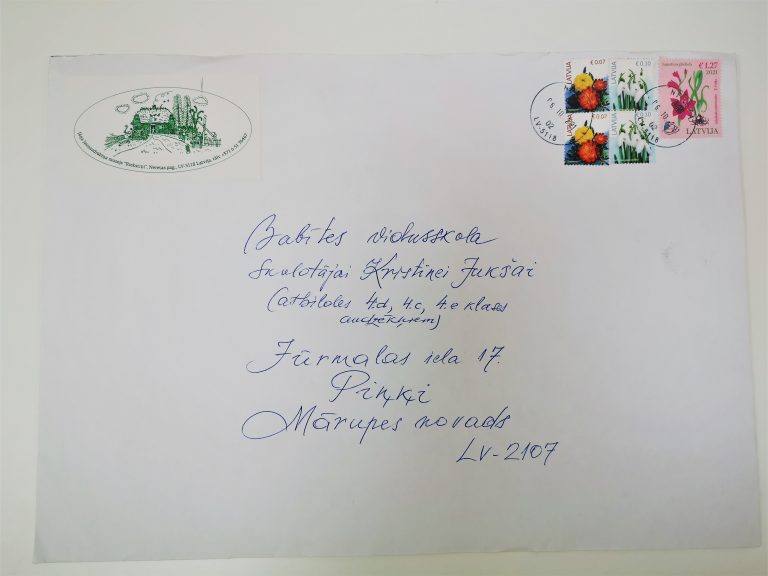 Jāņa Jaunsudrabiņa muzejs "Riekstiņi", Neretas pag., LV-5118 Latvija, tālr.
LATVIJA € 0.07
€ 0.30
€ 1.27
2021
LATVIJA
€ 0.07
10
02
LV-5118
10
02
5118
Babītes vidusskola
Skolotājai Kristīnei Jukšai
(atbildes 4.d, 4.c, 4.e klases
audzēkņiem)
Jūrmalas iela 17.
Piņķi
Mārupes novads
LV-2107